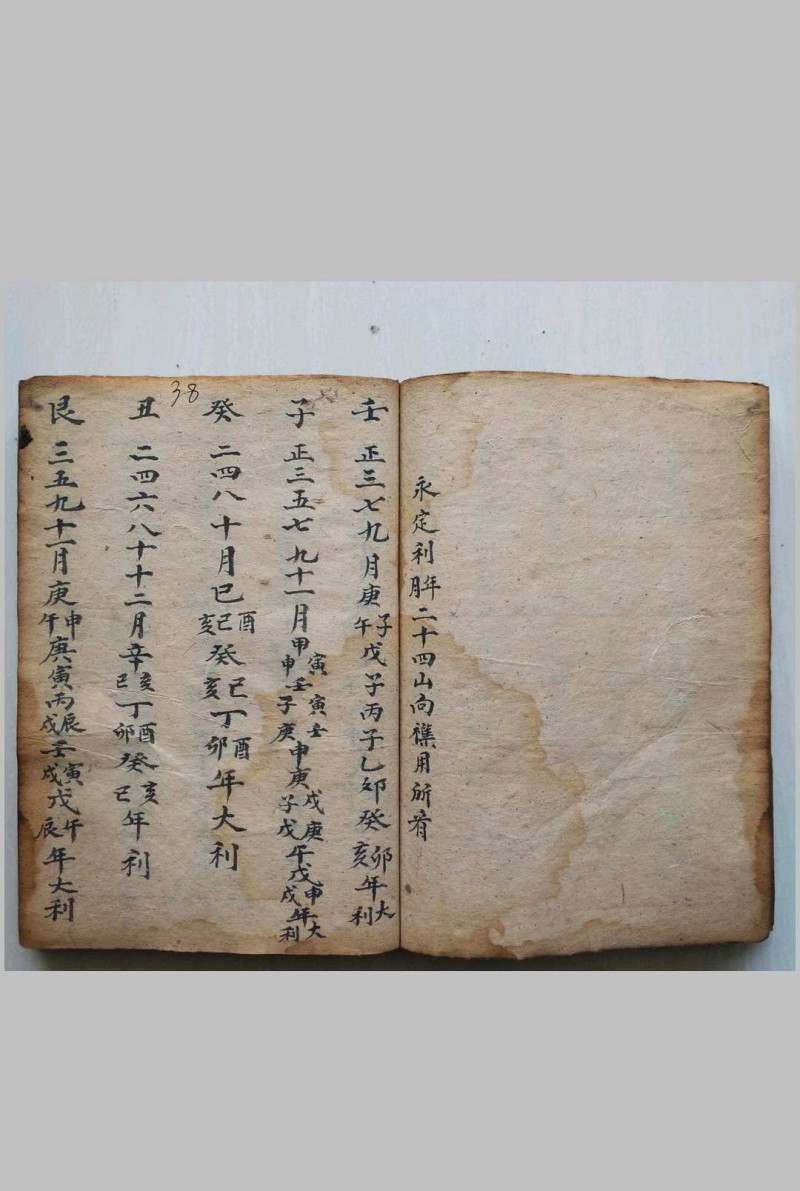 永定利年月二十四山向 用所看
壬 正三七九月庚子午戊子丙子乙卯癸卯亥年大利
子 正三五七九十一月甲寅申壬寅子庚 申庚戌子戊 午戊申戌年大利
癸 二四八十月巳酉巳亥癸巳亥丁酉卯年大利
丑 二四六八十十二月辛亥巳丁酉卯癸亥巳年利
艮 三五九十一月庚申午庚寅丙辰戌壬寅戌戊午辰年大利
38